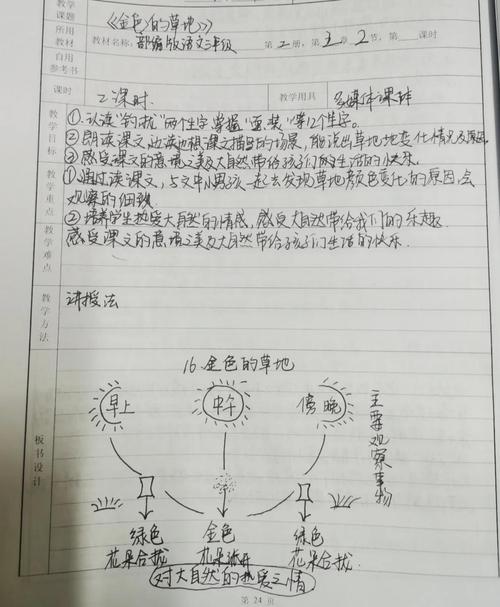 教学课题 《金色的草地》
所用教材 教材名称: 部编版语文三年级 第 册, 第 章 2 节, 第 课时
自用参考书
课时 2课时 教学用具 多媒体课件
教学目标 ①认读"钓、拢"两个生字,掌握"耍、装"等12个生字。
②朗读课文,边读边想课文描写的场景,能说出草地变化情况及原因。
③感受课文的意境之美及大自然带给孩子们的生活的快乐.
教学重点 ①通过读课文,与文中小男孩一起去发现草地颜色变化的原因,会
观察的细致
②培养学生热爱大自然的情感,感受大自然带给我们的乐趣.
教学难点 感受课文的意境之美及大自然带给孩子们生活的快乐.
教学方法 讲授法
板书设计
16.金色的草地
早上 中午 傍晚
主要观察事物
绿色 金色 绿色
花朵合拢 花朵张开 花朵合拢
对大自然的热爱之情
第 24 页